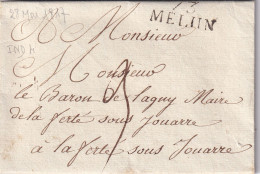 28 Mai 1817
IND 4
MELUN
Monsieur
Monsieur
le Baron de Lagny Maire
de la ferté sous Jouarre
à la ferté sous Jouarre